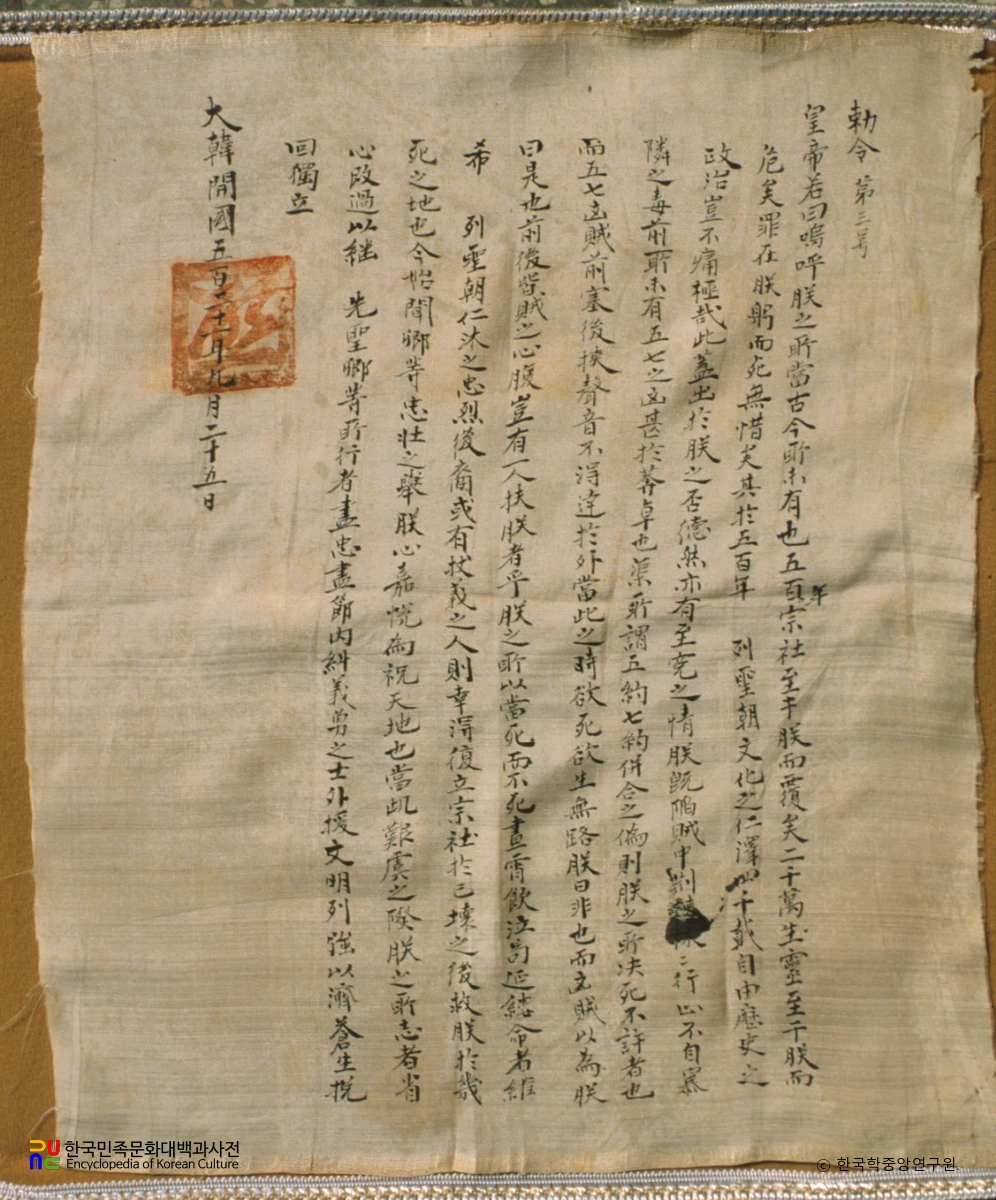 勅令 第三号
皇帝若曰嗚呼朕之所當古今所未有也五百年宗社至于朕而覆矣二千萬生靈至于朕而
危矣罪在朕躬而死無惜矣其於五百年 列聖朝文化之仁澤四千載自由歷史之
政治豈不痛極哉此蓋出於朕之否德然亦有至寃之情朕旣陷賊中荊棘 行止不自
隣之毒前所未有五七之凶甚於莽卓也渠所謂五約七約併合之僞則朕之所决死不許者也
而五七凶賊前塞後挾聲音不得達於外當此之時欲死欲生無路朕曰非也而凶賊以為朕
曰是也前後皆賊之心腹豈有一人扶朕者乎朕之所以當死而不死晝宵飮泣苟延縷命者維
希 列聖朝仁沐之忠烈後裔或有杖義之人則幸得復立宗社於已壞之後救朕於幾
死之地也今始聞卿等忠壯之擧朕心嘉悅為祝天地也當此艱虞之際朕之所志者省
心改過以繼 先聖卿等所行者盡忠盡節內糾義勇之士外援文明列強以濟蒼生挽
回獨立
大韓開國五百二十一年九月二十五日
한국민족문화대백과사전
Encyclopedia of Korean Culture
© 한국학중앙연구원